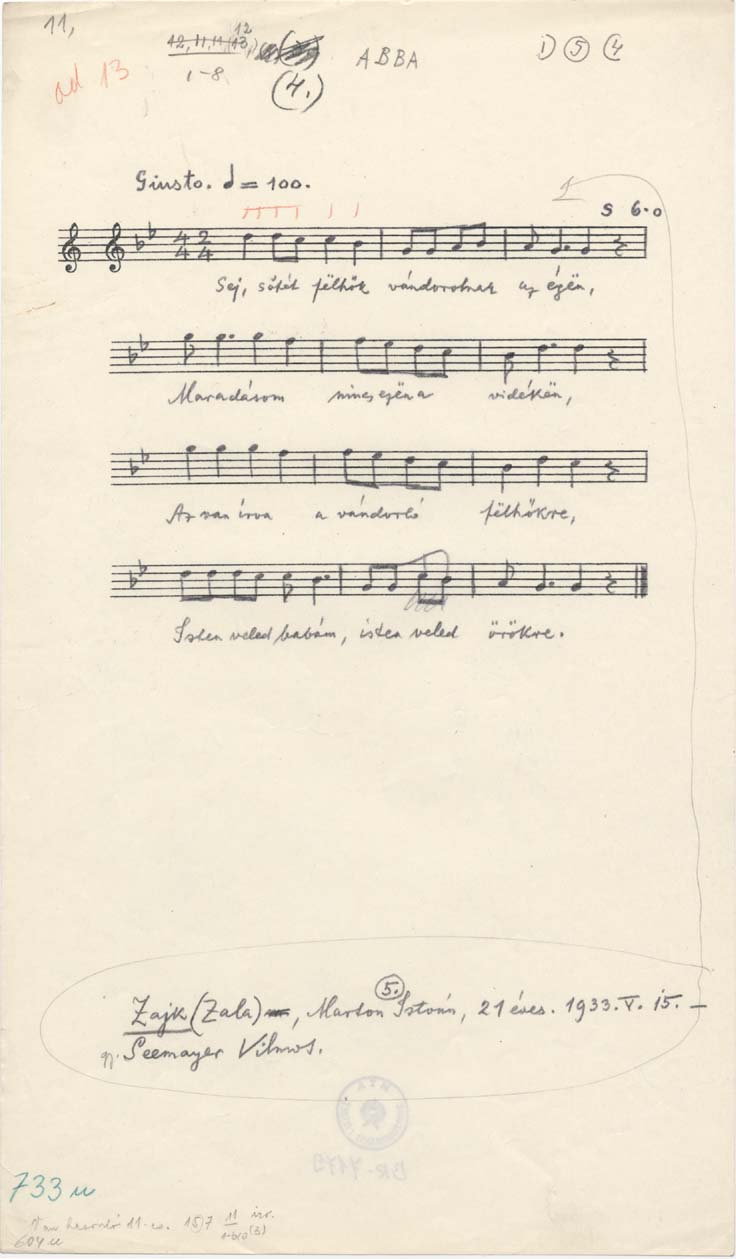 11,
12, 11, 11, 13,
12
1-8
(4.)
ABBA
1) 5 4
ad 13
Giusto. = 100.
S 6.0
4 2
4 4
Sej, sötét fëlhők vándorolnak az égën,
Maradásom nincs ezën a vidékën,
Az van írva a vándorló fëlhőkre,
Isten veled babám, isten veled örökre.
5.
Zajk (Zala), Marton István, 21 éves. 1933. V. 15. –
gy. Seemayer Vilmos.
BR-7175
733 u
604 u